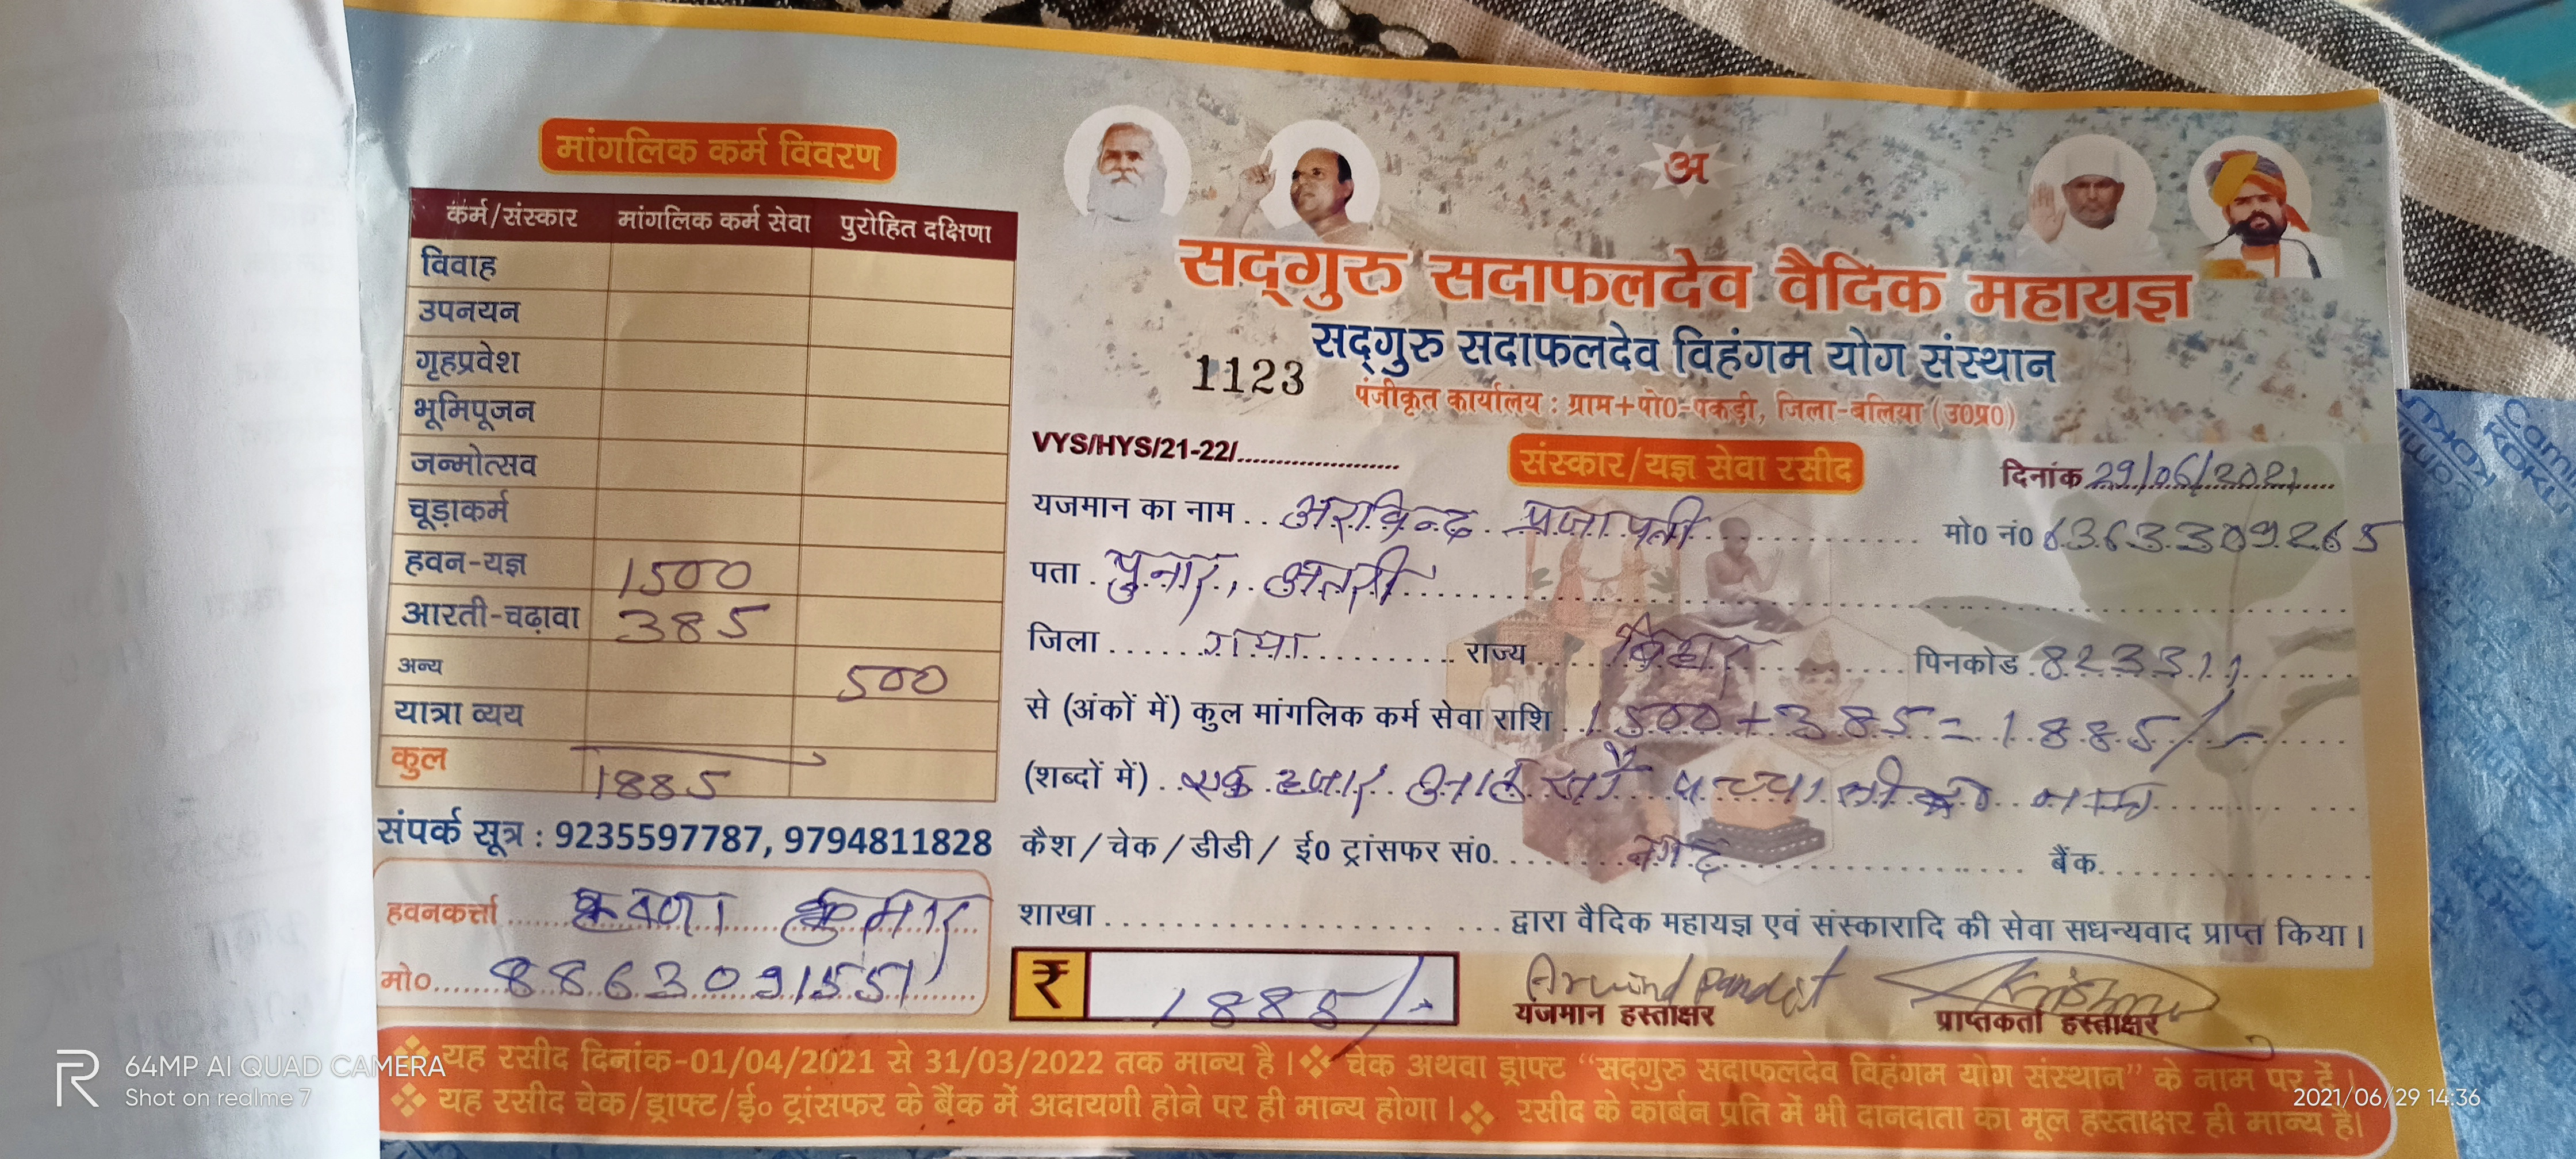 मांगलिक कर्म विवरण
कर्म/संस्कार मांगलिक कर्म सेवा पुरोहित दक्षिणा
विवाह
उपनयन
गृहप्रवेश
भूमिपूजन
जन्मोत्सव
चूड़ाकर्म
हवन-यज्ञ 1500
आरती-चढ़ावा 385
अन्य 500
यात्रा व्यय
कुल 1885
संपर्क सूत्र : 9235597787, 9794811828
हवनकर्त्ता कुमार
मो० 8863091551
अ
सद्गुरु सदाफलदेव वैदिक महायज्ञ
सद्गुरु सदाफलदेव विहंगम योग संस्थान
1123
पंजीकृत कार्यालय : ग्राम+पो0-पकड़ी, जिला-बलिया (उ0प्र0)
VYS/HYS/21-22/....................
संस्कार/यज्ञ सेवा रसीद
दिनांक 29/06/2021
यजमान का नाम अरविन्द प्रजापती मो0 नं0 6363309265
पता पुनार, अतरी
जिला गया राज्य बिहार पिनकोड 823311
से (अंकों में) कुल मांगलिक कर्म सेवा राशि 1500+385=1885/-
(शब्दों में) एक हजार आठ सौ पच्चासी मात्र
कैश/चेक/डीडी/ ई0 ट्रांसफर सं0. नगद बैंक
शाखा द्वारा वैदिक महायज्ञ एवं संस्कारादि की सेवा सधन्यवाद प्राप्त किया।
₹ 1885/-
Arvind pandit Krishna
यजमान हस्ताक्षर प्राप्तकर्ता हस्ताक्षर
यह रसीद दिनांक-01/04/2021 से 31/03/2022 तक मान्य है। चेक अथवा ड्राफ्ट “सद्गुरु सदाफलदेव विहंगम योग संस्थान” के नाम पर दें।
यह रसीद चेक/ड्राफ्ट/ई० ट्रांसफर के बैंक में अदायगी होने पर ही मान्य होगा। रसीद के कार्बन प्रति में भी दानदाता का मूल हस्ताक्षर ही मान्य है।
R 64MP AI QUAD CAMERA
Shot on realme 7
2021/06/29 14:36